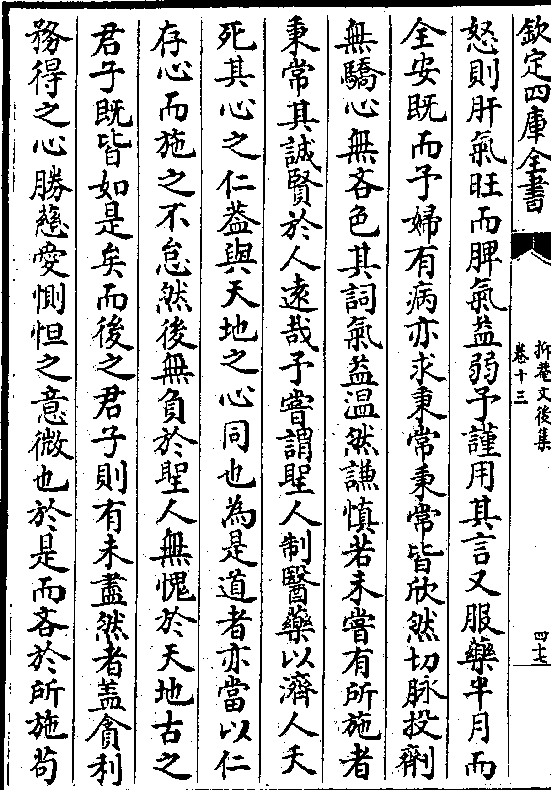 欽定四庫全書
析菴文後集
卷十三
四十七
怒則肝氣旺而脾氣益弱予謹用其言又服藥半月而
全安既而予婦有病亦求秉常秉常皆欣然切脉投劑
無驕心無吝色其詞氣益温然謙慎若未嘗有所施者
秉常其誠賢於人遠哉予嘗謂聖人制醫藥以濟人夭
死其心之仁葢與天地之心同也為是道者亦當以仁
存心而施之不怠然後無負於聖人無愧於天地古之
君子既皆如是矣而後之君子則有未盡然者蓋貪利
務得之心勝慈愛惻怛之意微也於是而吝於所施茍